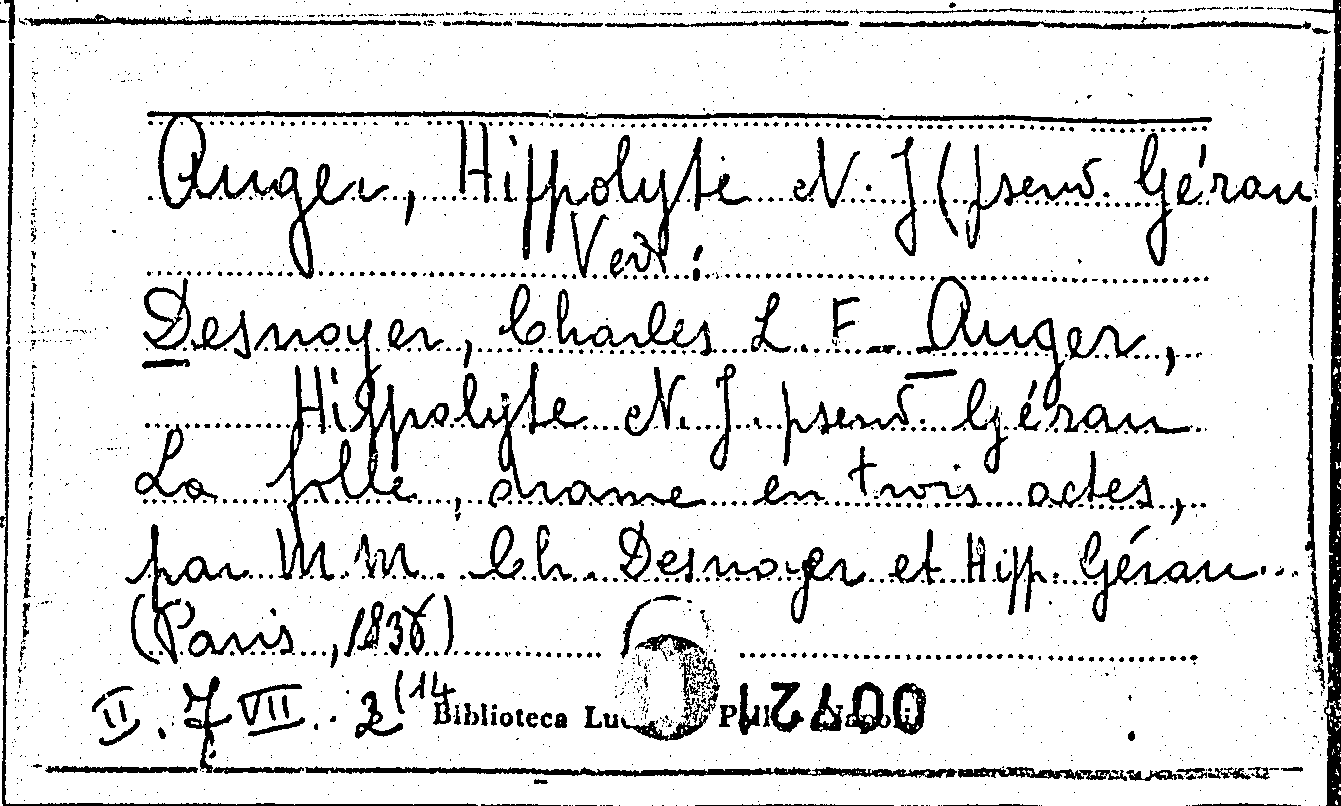 Auger, Hippolyte N. J (pseud. Gérau
Ved:
Desnoyer, Charles L. F_ Auger,
Hippolyte N. J. pseud. Gérau
La folle, drame en trois actes,
par M. M. Ch. Desnoyer et Hipp. Gérau...
(Paris, 1836)
II. 7 VII. 2(14
Biblioteca Lu